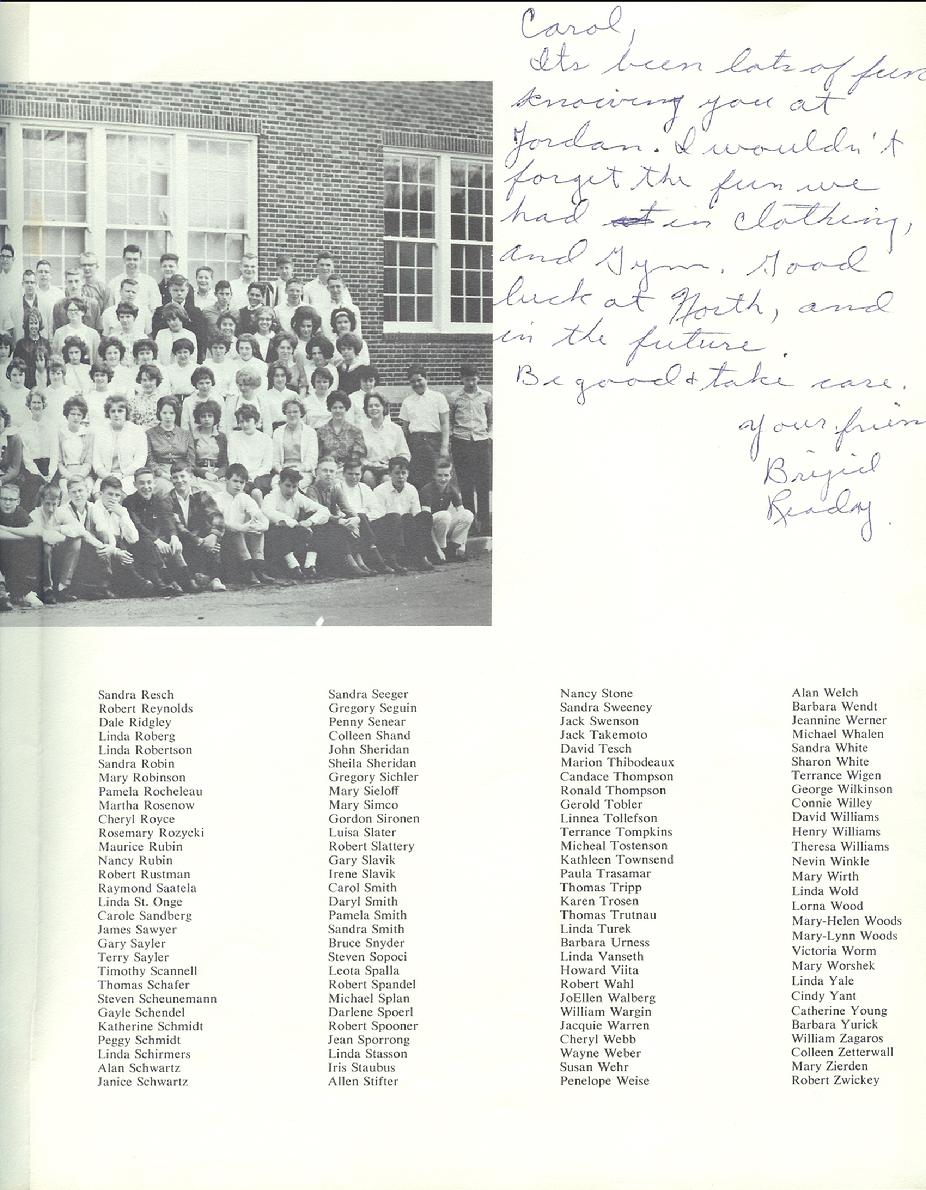 Carol,
Its been lots of fun
knowing you at
Jordan. I wouldn't
forget the fun we
had in clothing,
and Gym. Good
luck at North, and
in the future.
Be good & take care.
your frien
Readay
Sandra Resch
Robert Reynolds
Dale Ridgley
Linda Roberg
Linda Robertson
Sandra Robin
Mary Robinson
Pamela Rocheleau
Martha Rosenow
Cheryl Royce
Rosemary Rozycki
Maurice Rubin
Nancy Rubin
Robert Rustman
Raymond Saatela
Linda St. Onge
Carole Sandberg
James Sawyer
Gary Sayler
Terry Sayler
Timothy Scannell
Thomas Schafer
Steven Scheunemann
Gayle Schendel
Katherine Schmidt
Peggy Schmidt
Linda Schirmers
Alan Schwartz
Janice Schwartz
Sandra Seeger
Gregory Seguin
Penny Senear
Colleen Shand
John Sheridan
Sheila Sheridan
Gregory Sichler
Mary Sieloff
Mary Simco
Gordon Sironen
Luisa Slater
Robert Slattery
Gary Slavik
Irene Slavik
Carol Smith
Daryl Smith
Pamela Smith
Sandra Smith
Bruce Snyder
Steven Sopoci
Leota Spalla
Robert Spandel
Michael Splan
Darlene Spoerl
Robert Spooner
Jean Sporrong
Linda Stasson
Iris Staubus
Allen Stifter
Nancy Stone
Sandra Sweeney
Jack Swenson
Jack Takemoto
David Tesch
Marion Thibodeaux
Candace Thompson
Ronald Thompson
Gerold Tobler
Linnea Tollefson
Terrance Tompkins
Micheal Tostenson
Kathleen Townsend
Paula Trasamar
Thomas Tripp
Karen Trosen
Thomas Trutnau
Linda Turek
Barbara Urness
Linda Vanseth
Howard Viita
Robert Wahl
JoEllen Walberg
William Wargin
Jacquie Warren
Cheryl Webb
Wayne Weber
Susan Wehr
Penelope Weise
Alan Welch
Barbara Wendt
Jeannine Werner
Michael Whalen
Sandra White
Sharon White
Terrance Wigen
George Wilkinson
Connie Willey
David Williams
Henry Williams
Theresa Williams
Nevin Winkle
Mary Wirth
Linda Wold
Lorna Wood
Mary-Helen Woods
Mary-Lynn Woods
Victoria Worm
Mary Worshek
Linda Yale
Cindy Yant
Catherine Young
Barbara Yurick
William Zagaros
Colleen Zetterwall
Mary Zierden
Robert Zwickey